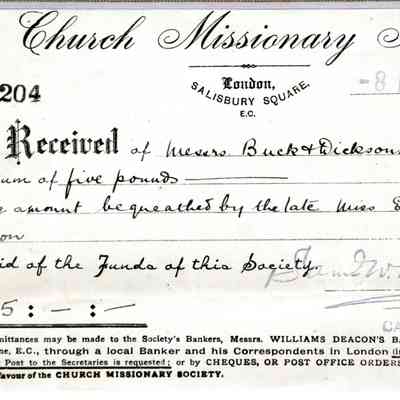 Church Missionary
London,
SALISBURY SQUARE,
E.C.
-8
204
Received of Messrs Buck & Dicksons
um of five pounds
amount bequeathed by the late Miss
on
id of the Funds of this Society.
5 : - : -
mittances may be made to the Society's Bankers, Messrs. WILLIAMS DEACON'S BA
ne, E.C., through a local Banker and his Correspondents in London (
Post to the Secretaries is requested; or by CHEQUES, OR POST OFFICE ORDERS
favour of the CHURCH MISSIONARY SOCIETY.